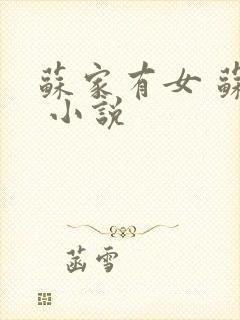 蘇家有女 蘇
小說
菡雪